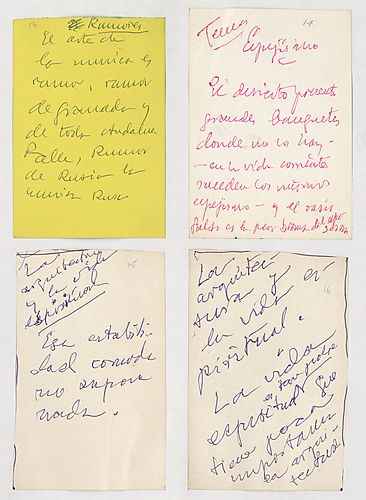 13
Rumores
El arte de
la música es
rumor, rumor
de granada y
de toda andalucia
Falla, Rumor
de Rusia la
musica Rusa
14
Temas
Espejismo
El desierto presenta
grandes banquetes
donde no los hay -
- en la vida corriente
suceden los mismos
espejismo - y el oasis
falso es la peor
15
La
arquitectura
y la vida
espiritual
Esa estabili
dad comoda
no supone
nada.
16
La
arquitec
tura y
la vida es
piritual.
La vida
espiritual
tiene poca
importancia
la arqui
tectura